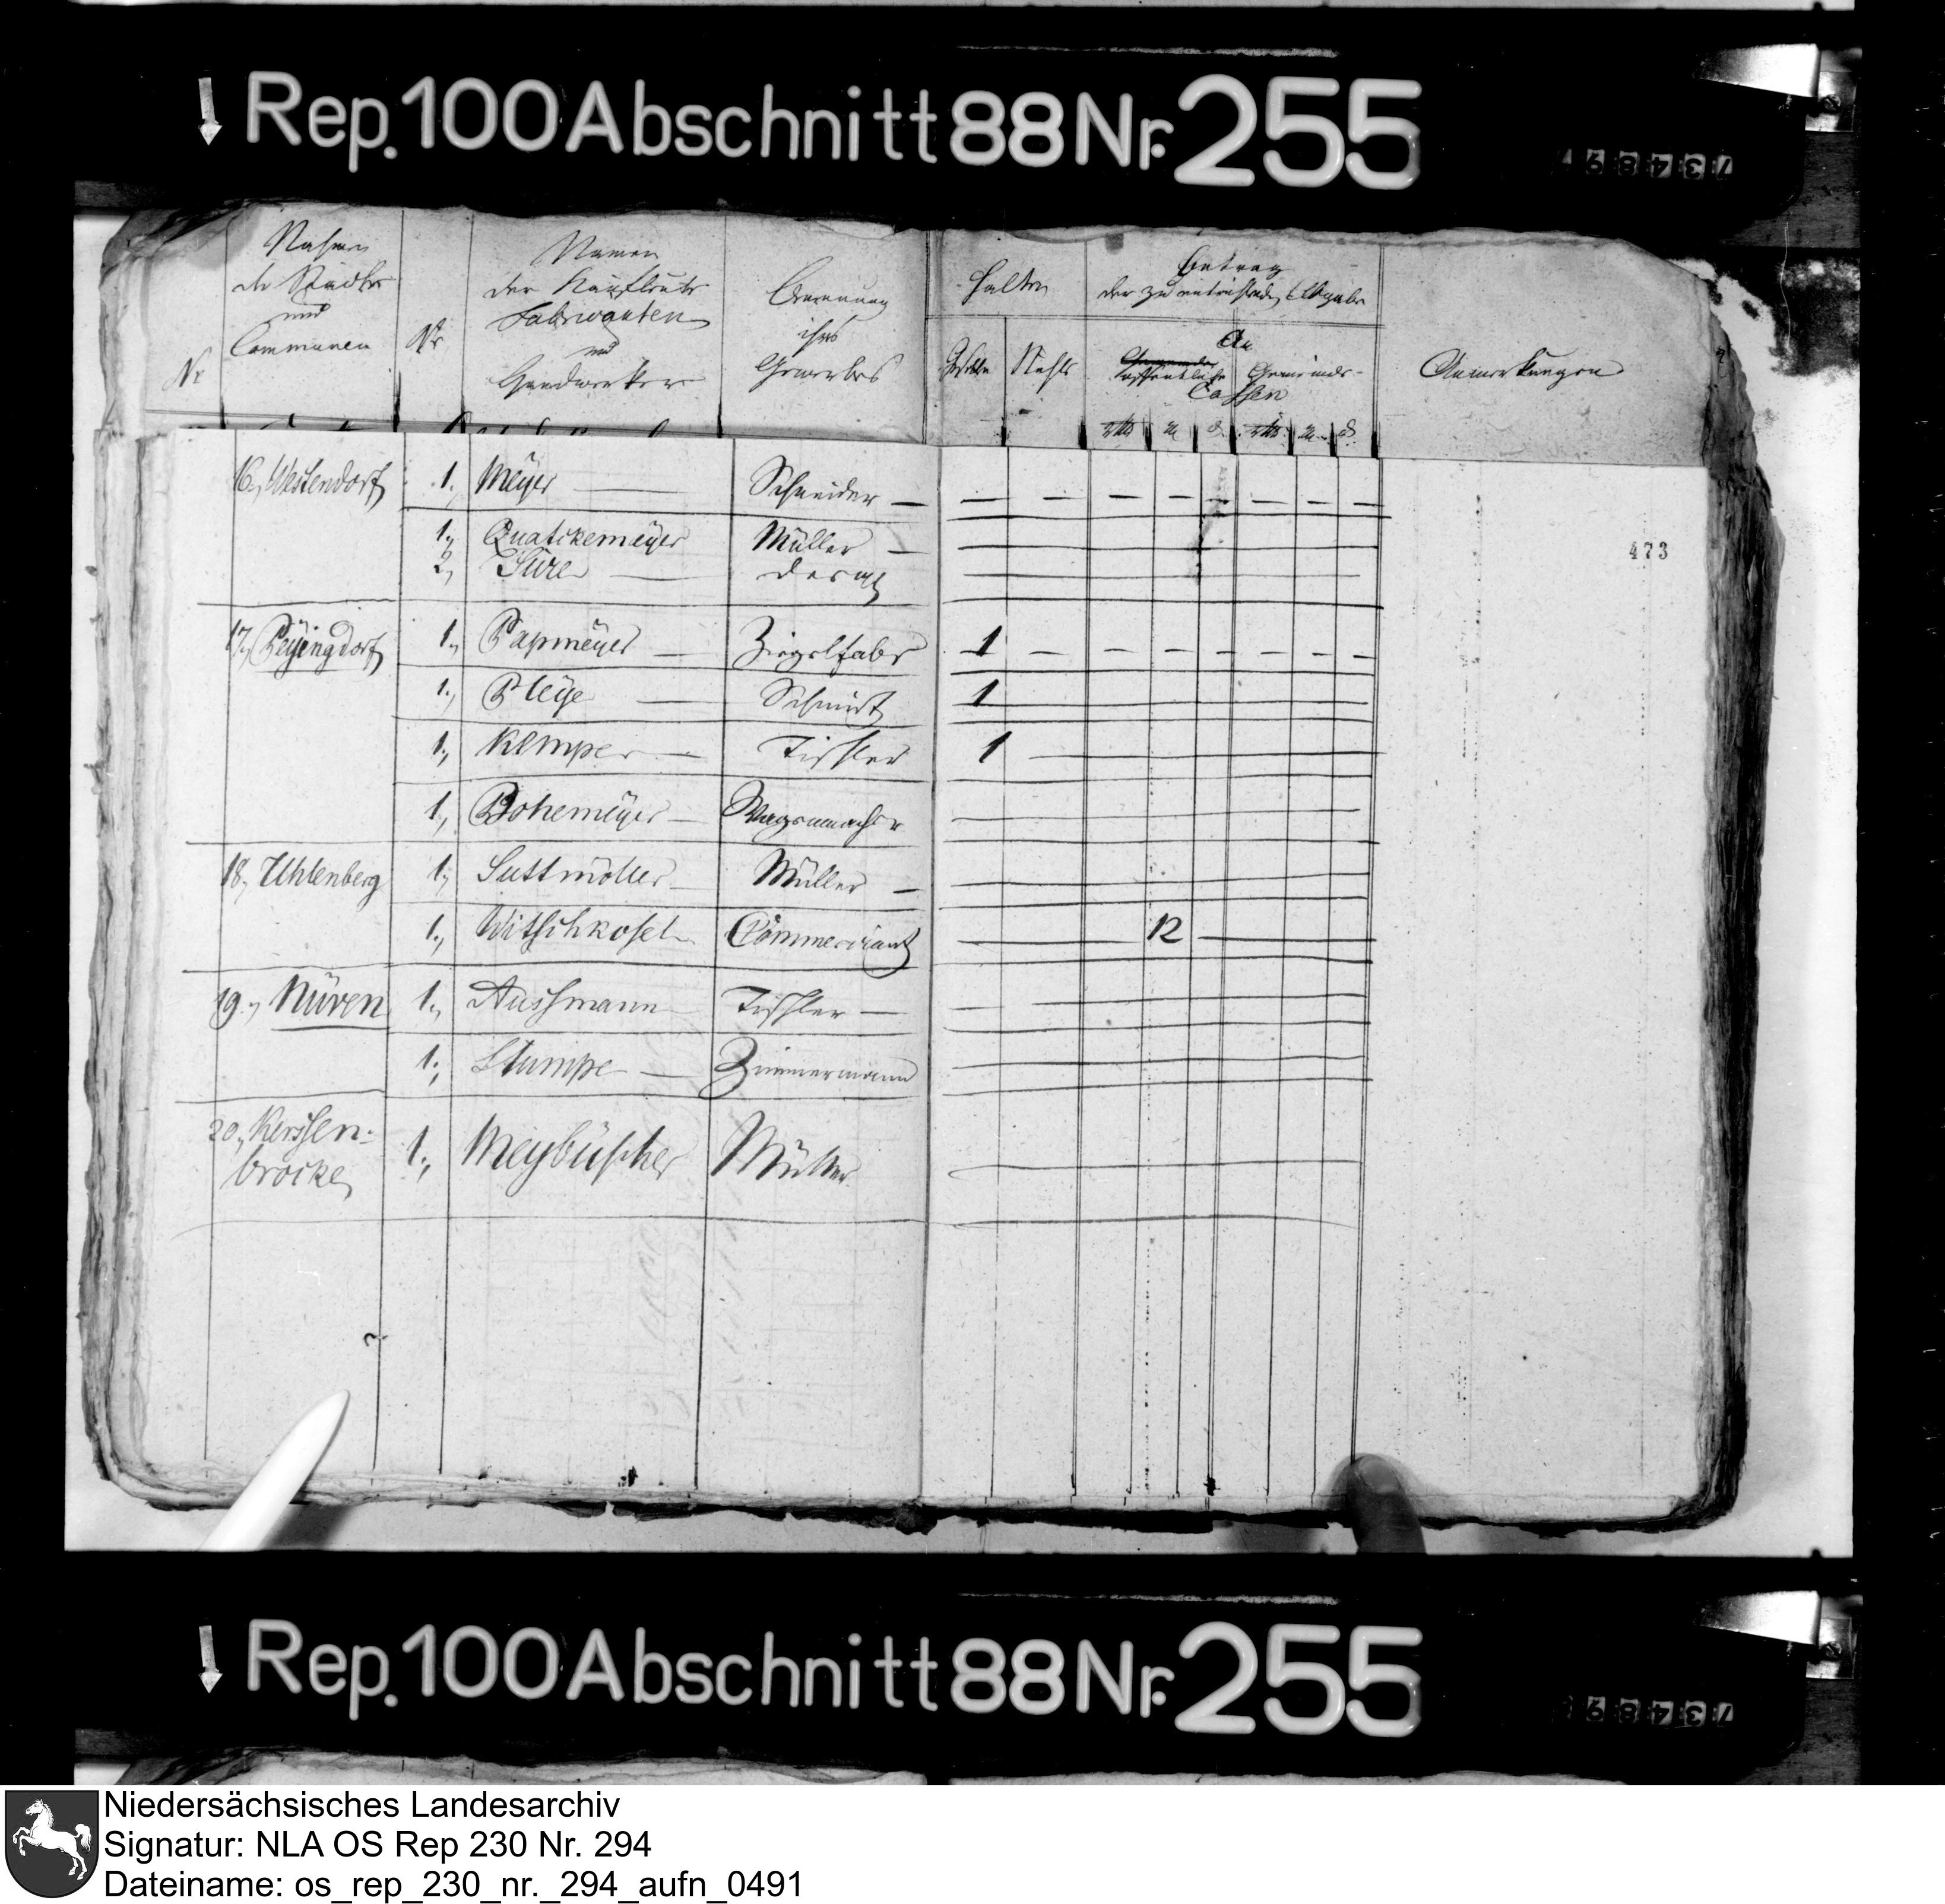 Rep. 100 Abschnitt 88 Nr. 255
73489
Nahmen
der Städte
und
Communen
Nr
Nr
Namen
der Kaufleute
Fabricanten
und
Handwerker
Benennung
ihres
Gewerbes
halten
Gesellen
Betrag
der zu entrichtenden Abgabe
An
öffentliche
Gemeinde-
Cassen
Anmerkungen
16., Westendorf 1., Meÿer — Schneider — — — — — — — — —
1., Quatckemeÿer Müller —
2., Sure — derogl
473
17., Peÿingdorf 1., Papmeÿer — Ziegelfabr 1 — — — — — — —
1., Pleÿe — Schmidt 1
1., Kemper — Tischler 1
1., Bohemeÿer — Wagenmacher
18., Uhlenberg 1., Suttmöller — Müller —
1., Witschkosel Commerciant 12
19., Nüven 1., Aussmann Tischler —
1., Stumpe — Zimmermann
20., Kerssen-
brocke 1., Meybüscher Müller
Rep. 100 Abschnitt 88 Nr. 255
73489
Niedersächsisches Landesarchiv
Signatur: NLA OS Rep 230 Nr. 294
Dateiname: os_rep_230_nr._294_aufn_0491